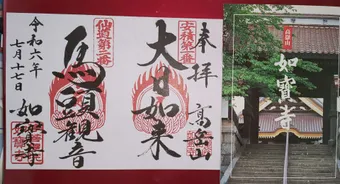 奉拝
高岳山
安積第一番
大日如来
仙道第一番
馬頭観音
令和六年
七月十七日
如寶寺
高岳山
如寳寺